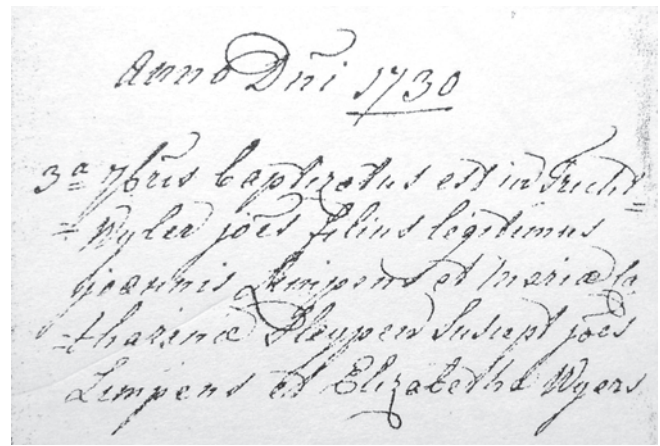 Anno Dñi 1730
3ª 7bris baptizatus est in Trecht
= Wyler joes filius legitimus
joannis Limpens et Mariæ Ca
=tharinæ Sleypen Suscept joes
Limpens et Elizabetha Wyers